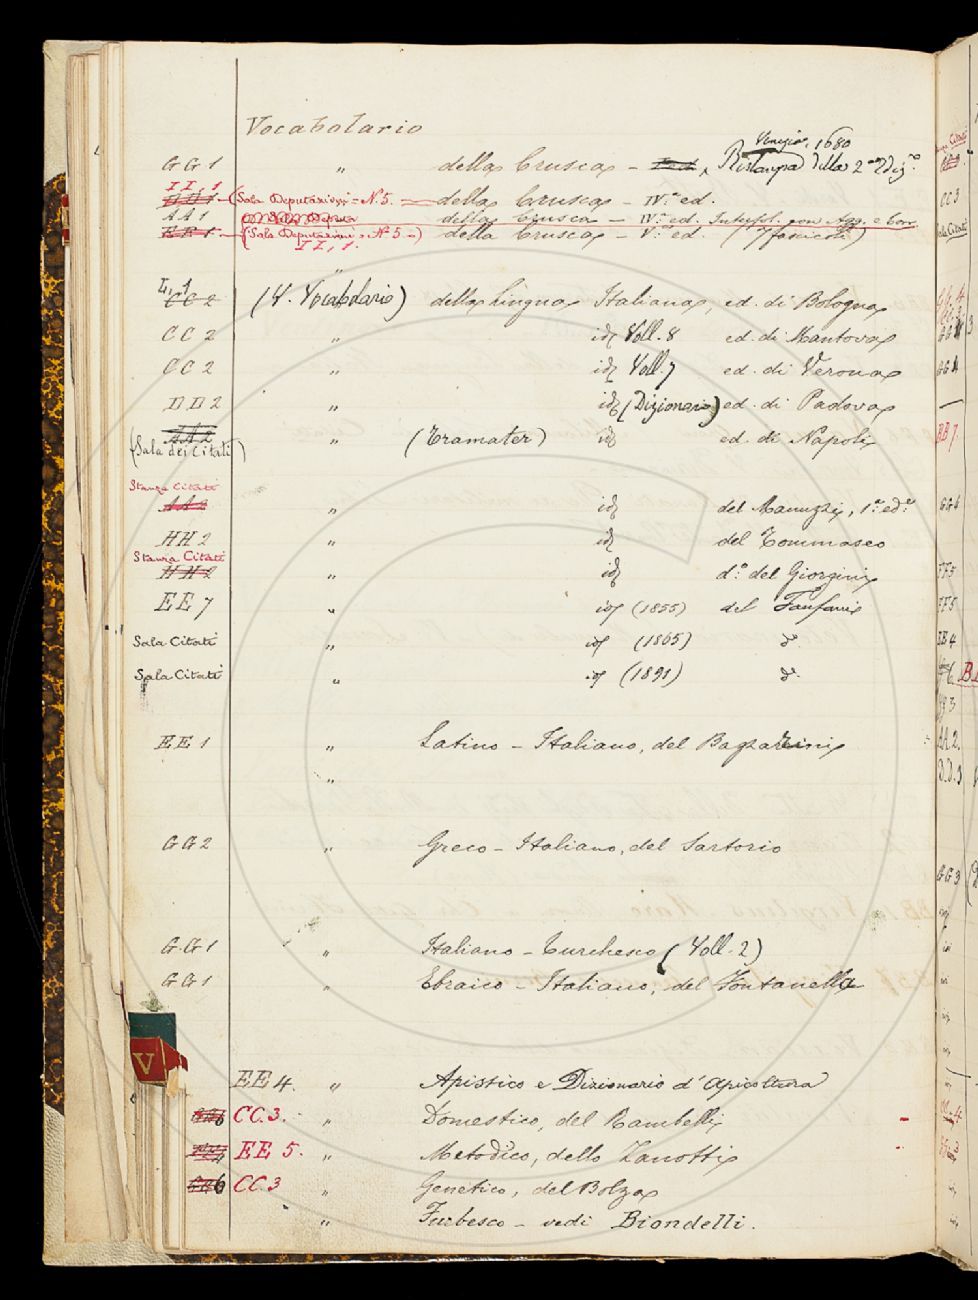 Vocabolario
Venezia, 1680
GG1 " della Crusca - Ristampa della 2ª Ediz.e
II, 1
(Sala Deputazioni = Nº 5. — della Crusca - IVª ed.
AA1 della Crusca - IVª ed. con Agg. e Corr.
EE1 - (Sala Deputazioni = Nº 5 =) della Crusca - Vª ed. (7 fascicoli)
II, 1.
"
L, 1
CC2 (V. Vocabolario) della Lingua Italiana, ed. di Bologna
CC2 " id Voll. 8 ed. di Mantova
CC2 " id Voll. 7 ed. di Verona
DD2 " id (Dizionario) ed. di Padova
AA2 " (Tramater) id ed. di Napoli
(Sala dei Citati)
Stanza Citati
AA2 " id del Manuzzi, 1ª ed.e
HH2 " id del Tommaseo
Stanza Citati
HH2 " id dº del Giorgini
EE7 " id (1855) del Fanfani
Sala Citati " id (1865) dº
Sala Citati " id (1891) dº
EE1 " Latino - Italiano, del Bazzarini
"
GG2 " Greco - Italiano, del Sartorio
GG1 " Italiano - Turchesco (Voll. 2)
GG1 " Ebraico - Italiano, del Fontanella
V
EE4. " Apistico e Dizionario d'apicoltura
CC.3. " Domestico, del Rambelli
EE 5. " Metodico, dello Zanotti
CC.3 " Genetico, del Bolza
" Furbesco - vedi Biondelli.